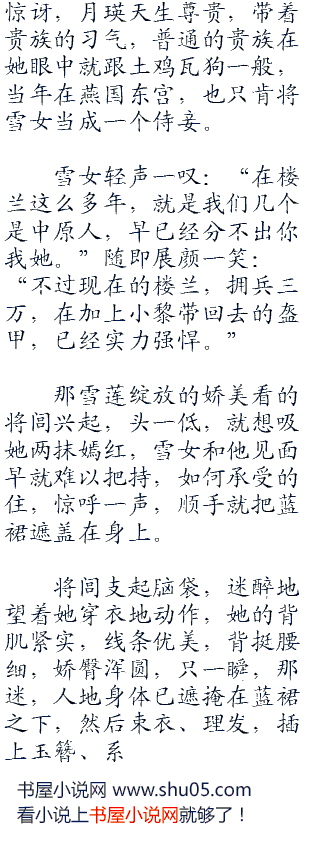 惊讶，月瑛天生尊贵，带着
贵族的习气，普通的贵族在
她眼中就跟土鸡瓦狗一般，
当年在燕国东宫，也只肯将
雪女当成一个侍妾。
雪女轻声一叹：“在楼
兰这么多年，就是我们几个
是中原人，早已经分不出你
我她。”随即展颜一笑：
“不过现在的楼兰，拥兵三
万，在加上小黎带回去的盔
甲，已经实力强悍。”
那雪莲绽放的娇美看的
将闾兴起，头一低，就想吸
她两抹嫣红，雪女和他见面
早就难以把持，如何承受的
住，惊呼一声，顺手就把蓝
裙遮盖在身上。
将闾支起脑袋，迷醉地
望着她穿衣地动作，她的背
肌紧实，线条优美，背挺腰
细，娇臀浑圆，只一瞬，那
迷，人地身体已遮掩在蓝裙
之下，然后束衣、理发，插
上玉簪、系
书屋小说网 www.shu05.com
看小说上书屋小说网就够了！